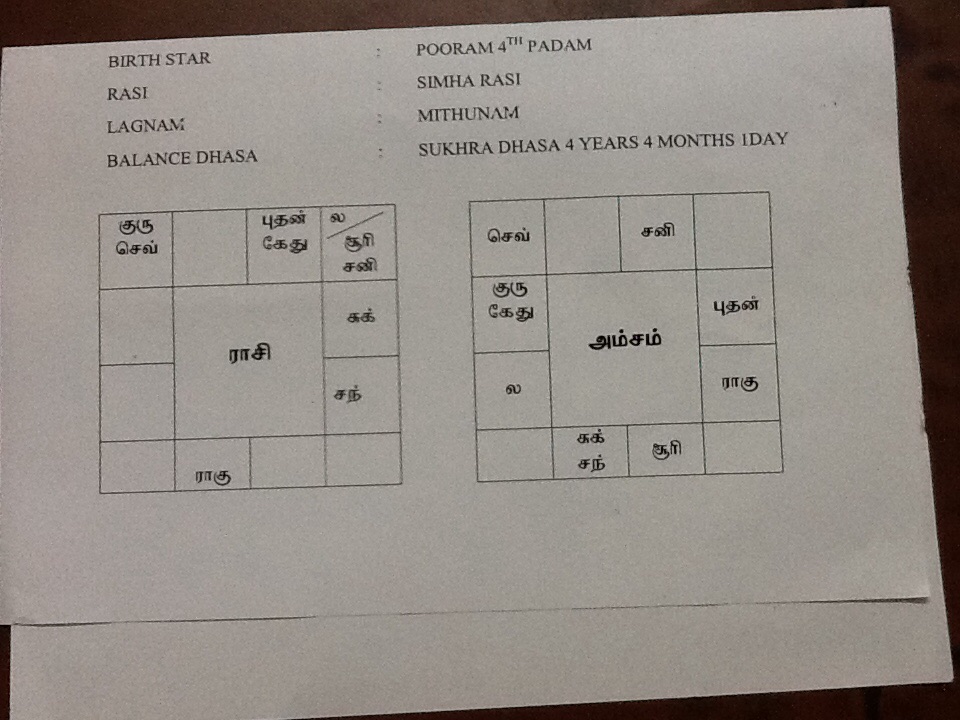 BIRTH STAR : POORAM 4TH PADAM
RASI : SIMHA RASI
LAGNAM : MITHUNAM
BALANCE DHASA : SUKHRA DHASA 4 YEARS 4 MONTHS 1DAY
குரு
செவ்
புதன்
கேது
ல
சூரி
சனி
சுக்
ராசி
சந்
ராகு
செவ்
சனி
குரு
கேது
புதன்
அம்சம்
ல
ராகு
சுக்
சந்
சூரி